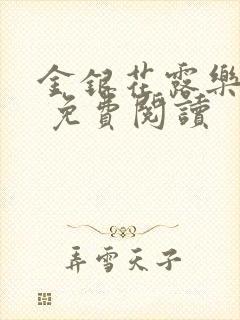 金銀花露樂
免費閱讀
弄雪天子